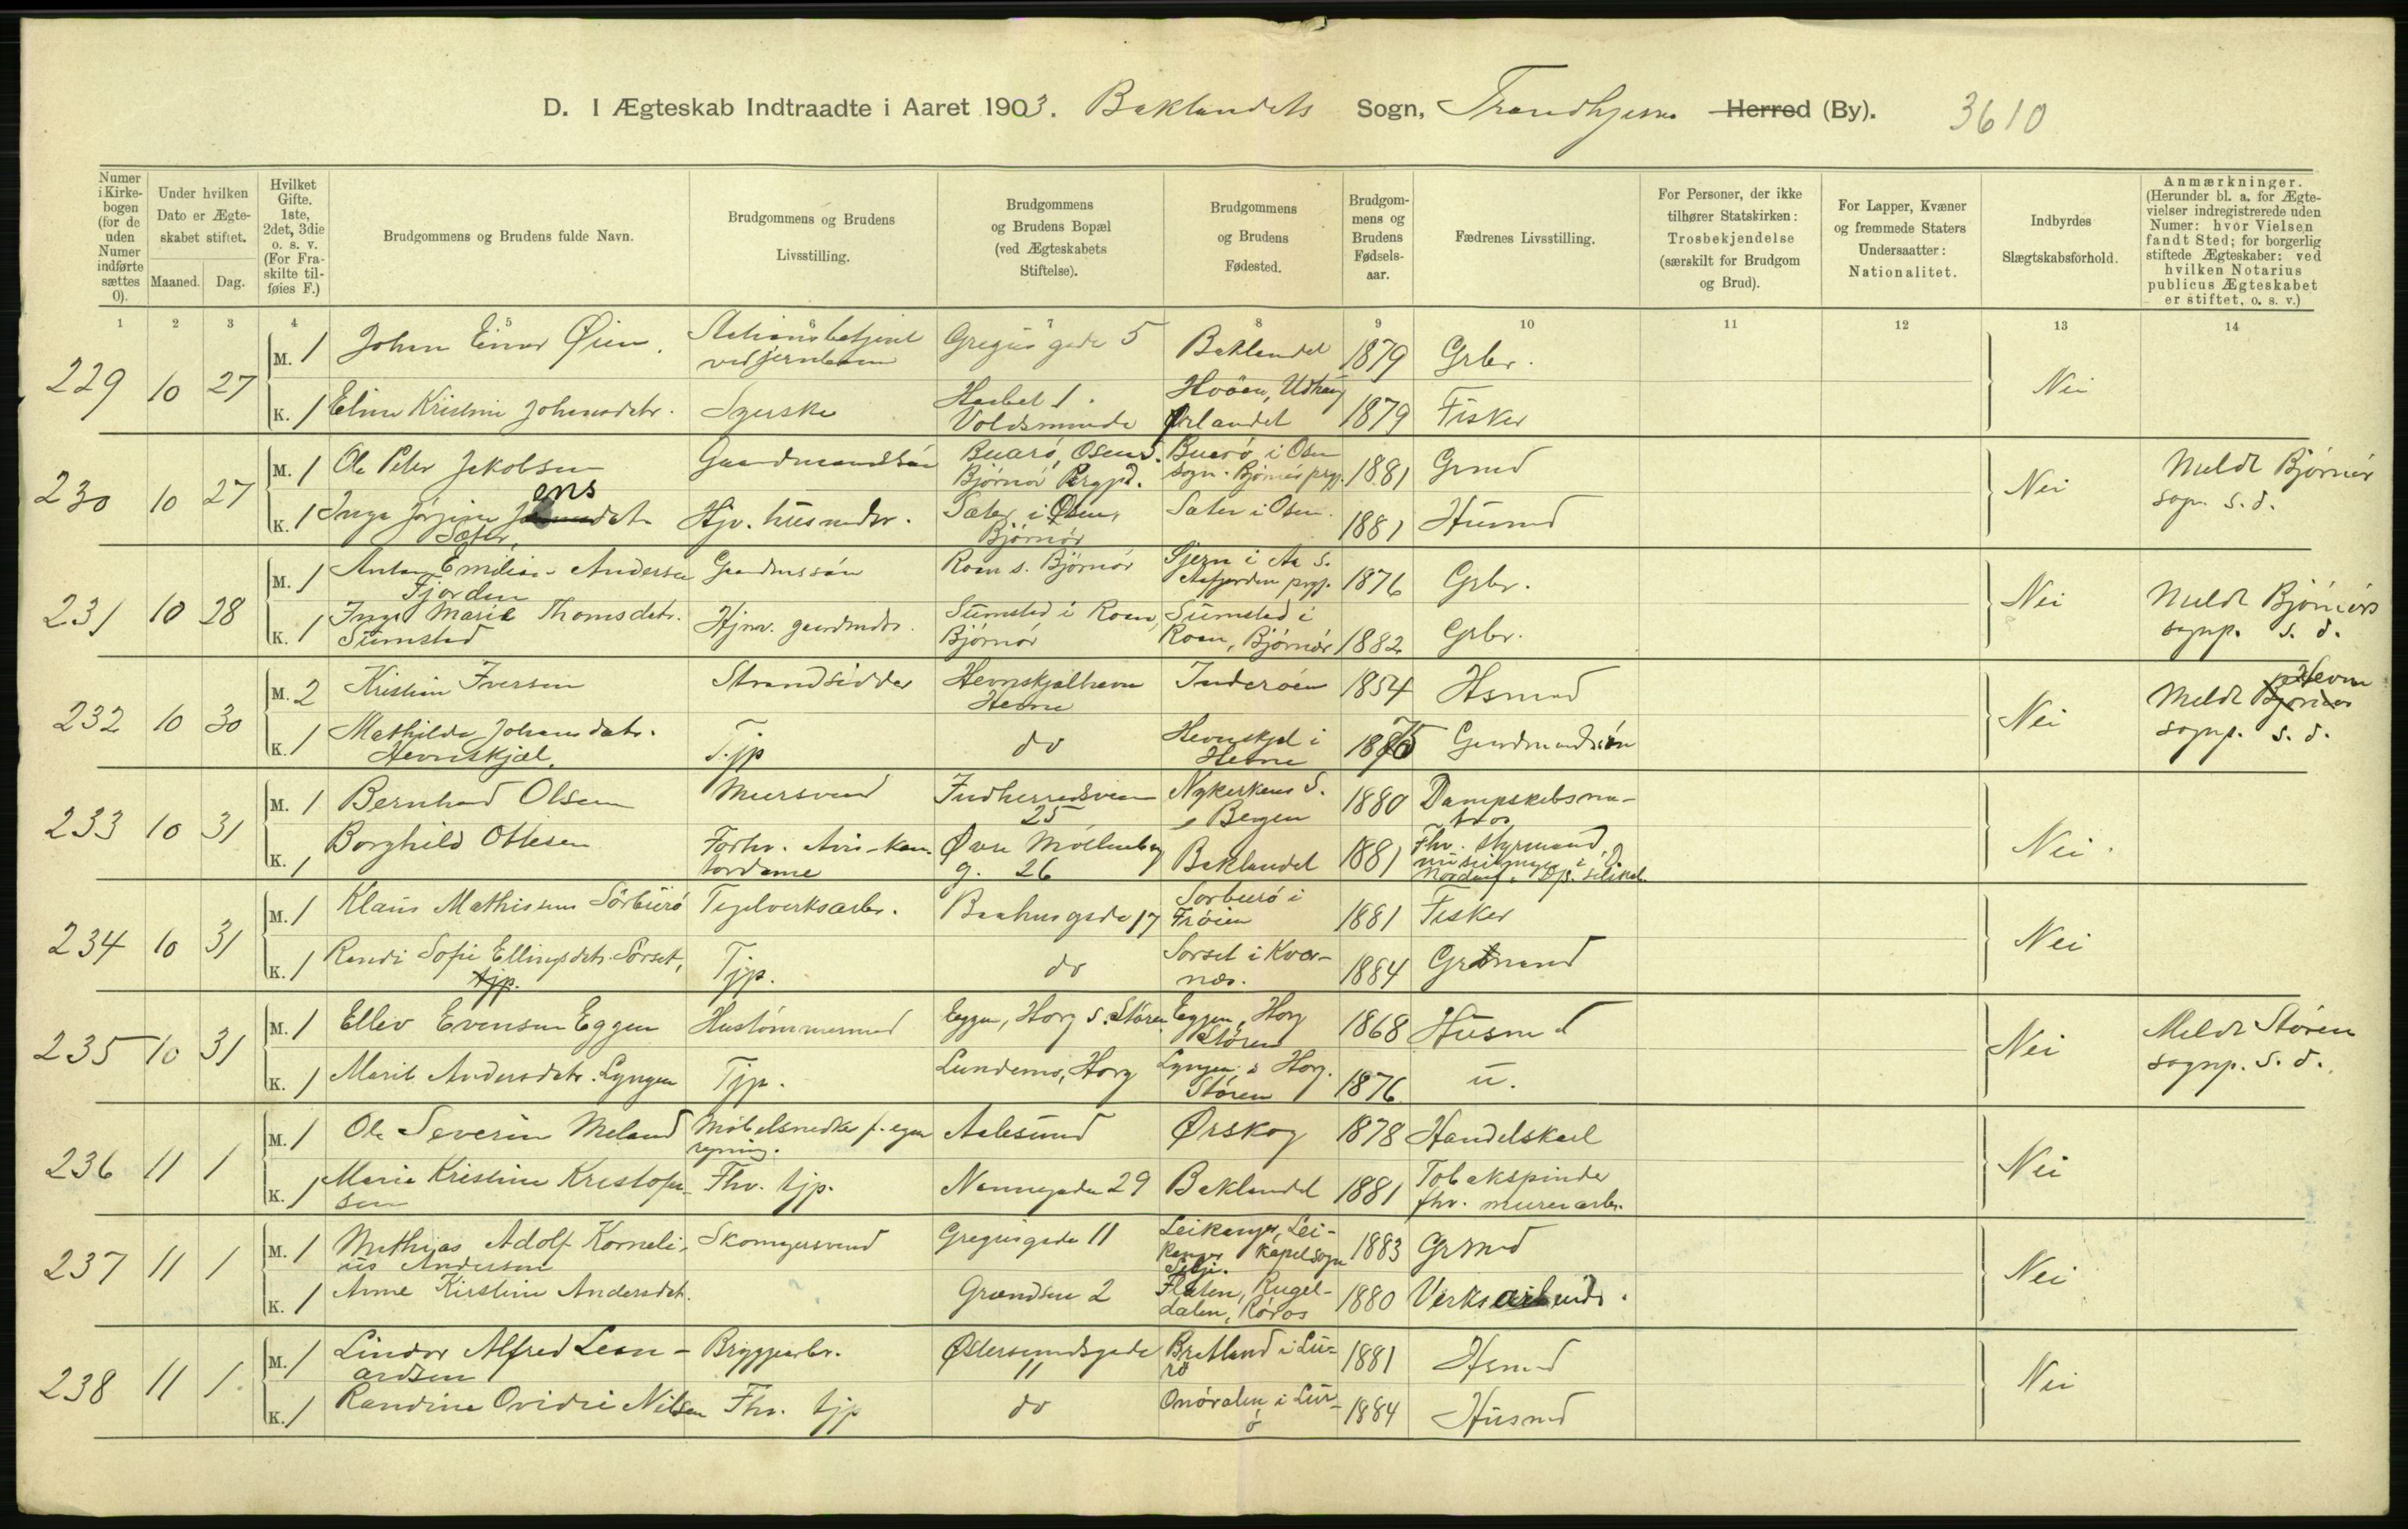 D. I Ægteskab Indtraadte i Aaret 1903. Baklandets Sogn, Trondhjems Herred (By). 3610
Numer i Kirkebogen (for de uden Numer indførte sættes 0).
Under hvilken Dato er Ægteskabet stiftet.
Maaned. Dag.
Hvilket Gifte. 1ste, 2det, 3die o. s. v. (For Fraskilte tilføies F.)
Brudgommens og Brudens fulde Navn.
Brudgommens og Brudens Livsstilling.
Brudgommens og Brudens Bopæl (ved Ægteskabets Stiftelse).
Brudgommens og Brudens Fødested.
Brudgommens og Brudens Fødselsaar.
Fædrenes Livsstilling.
For Personer, der ikke tilhører Statskirken: Trosbekjendelse (særskilt for Brudgom og Brud).
For Lapper, Kvæner og fremmede Staters Undersaatter: Nationalitet.
Indbyrdes Slægtskabsforhold.
Anmærkninger. (Herunder bl. a. for Ægtevielser indregistrerede uden Numer: hvor Vielsen fandt Sted; for borgerlig stiftede Ægteskaber: ved hvilken Notarius publicus Ægteskabet er stiftet, o. s. v.)
1 2 3 4 5 6 7 8 9 10 11 12 13 14
229 10 27 M. 1 Johan Einar Øien. Stationsbetjent ved jernbanen Gregus gade 5 Baklandet 1879 Grbr. Nei
K. 1 Eline Kristine Johansdatr. Syerske Voldsminde Ørlandet 1879 Fisker
230 10 27 M. 1 Ole Peter Jakobsen Gaardmandssön Buarö, Osen S. Bjørnör Prgjd. Buarö i Osen sogn. Bjørnörs prgj. 1881 Grmd Nei Meldt Bjørnör sogn. s. d.
K. 1 Inga Jørgine Jensdatr. Sæter Hjv. husmdtr. Sæter i Osen, Bjørnör Sæter i Osen. 1881 Husmd
231 10 28 M. 1 Anton Emilian Andersen Fjorden Gaardmssön Roan s. Bjørnör i Aa S. Aafjorden prgj. 1876 Grbr. Nei Meldt Bjørnörs sognp. s. d.
K. 1 Inga Marie Thomsdatr. Sumstad Hjmv. gaardmdtr. Sumstad i Roan, Bjørnör Sumstad i Roan, Bjørnör 1882 Grbr.
232 10 30 M. 2 Kristian Iversen Strandsidder Hevnskjelhavn Hevne Inderøen 1854 Hsmnd Nei Meldt Hevne sognp. s. d.
K. 1 Mathilde Johansdatr. Hevnskjæl. Tjp do Hevnskjel i Hevne 1875 Gaardmandssön
233 10 31 M. 1 Bernhard Olsen Mursvend Indherredsveien 25 Nykerkens S. Bergen 1880 Dampskibsmatros Nei.
K. 1 Borghild Ottesen Forhv. Avis-kontordame Øvre Möllenberg g. 26 Baklandet 1881 Fhv. styrmand,
234 10 31 M. 1 Klaus Mathisens Sörburö Teglverksarbr. Baahusgade 17 Sorburö i Fröien 1881 Fisker Nei
K. 1 Randi Sofie Ellingsdatr. Sorset, Tjp. do Sorset i Kvernæs. 1884 Grmand
235 10 31 M. 1 Ellev Evensen Eggen Hustömmermnd Eggen, Horg s. Stören Eggen, Horg Stören 1868 Husmd Nei Meldt Stören sognp. s. d.
K. 1 Marit Andersdatr. Lyngen Tjp. Lundemo, Horg Lyngen i Horg. Stören 1876 u.
236 11 1 M. 1 Ole Severin Meland Möbelsnedker f. egen regning. Aalesund Ørskog 1878 Handelskarl Nei
K. 1 Marie Kristine Kristofersen Fhv. tjp. Nannegaden 29 Baklandet 1881 Tobakspinder fhv. murerarbr.
237 11 1 M. 1 Mathias Adolf Kornelius Andersen Skomgersvend Gregusgade 11 Leikanger, Leikanger kapelsogn Selje. 1883 Grmd Nei
K. 1 Anne Kirstine Andersdatr. Grændsen 2 Flaten, Rugeldalen, Röros 1880 Verksarbeider.
238 11 1 M. 1 Lindor Alfred Leonardsen Bryggearbr. Østersundsgade 11 Bratland i Lurö 1881 Hsmd Nei
K. 1 Randine Ovidie Nilsen Fhv. tjp do Onövalen i Lurö 1884 Husmd